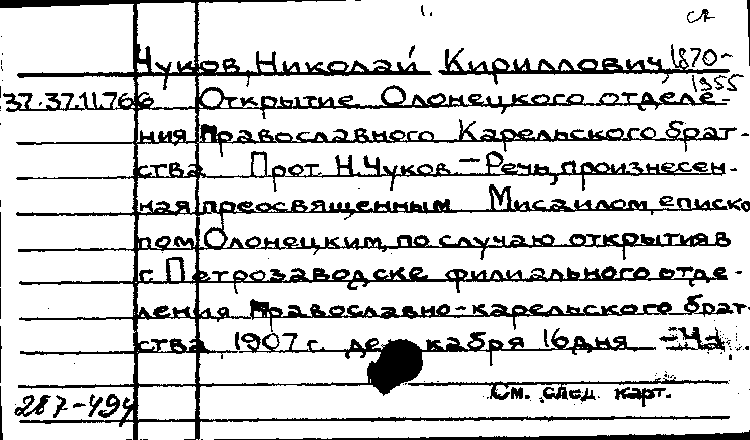 1. СК
Чуков, Николай Кириллович, 1870-1955
37.37.11.766 Открытие Олонецкого отделе-
ния Православного Карельского брат-
ства Прот. Н.Чуков. – Речь, произнесен-
ная преосвященным Мисаилом, еписко
пом Олонецким, по случаю открытия в
г. Петрозаводске филиального отде-
ления Православно-карельского брат
ства 1907 г. декабря 16 дня
См. след. карт.
287-494